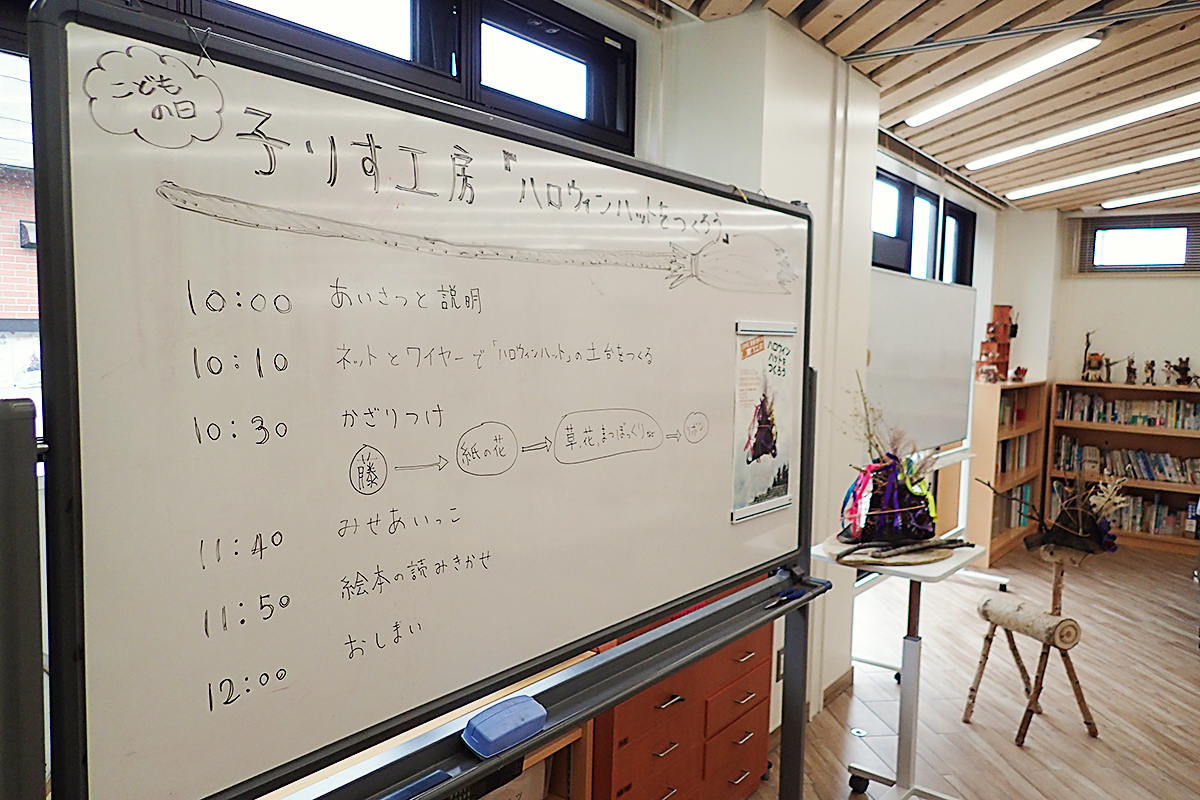 こども
の日
子りす工房『ハロウィンハットをつくろう』
10:00 あいさつと説明
10:10 ネットとワイヤーで「ハロウィンハット」の土台をつくる
10:30 かざりつけ
藤 → 紙の花 ⇒ 草、花、まつぼっくりなど ⇒ リボン
11:40 みせあいっこ
11:50 絵本の読みきかせ
12:00 おしまい
ハロウィン
ハットを
つくろう